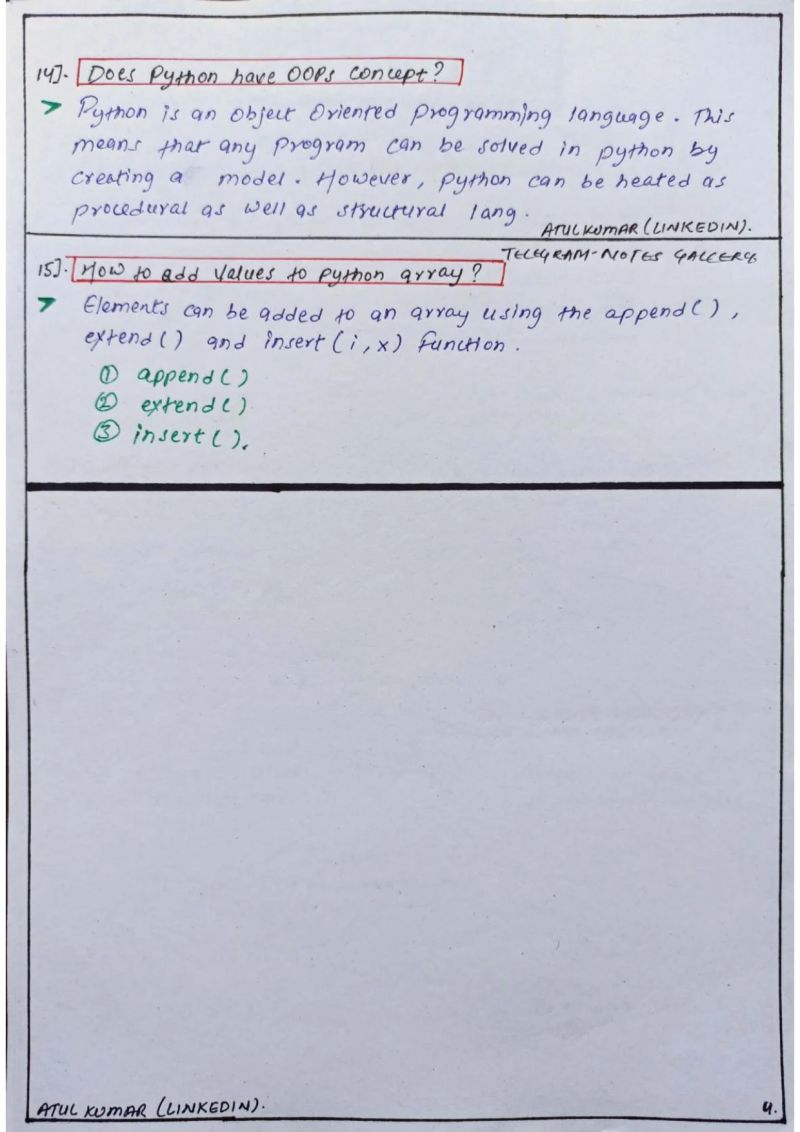 14]. Does Python have OOPs concept?
> Python is an Object Oriented programming language. This
means that any program can be solved in python by
creating a model. However, python can be heated as
procedural as well as structural lang.
ATUL KUMAR (LINKEDIN).
TELEGRAM-NOTES GALLERY
15]. How to add values to python array?
> Elements can be added to an array using the append(),
extend() and insert(i,x) function.
① append()
② extend()
③ insert().
ATUL KUMAR (LINKEDIN).
4.